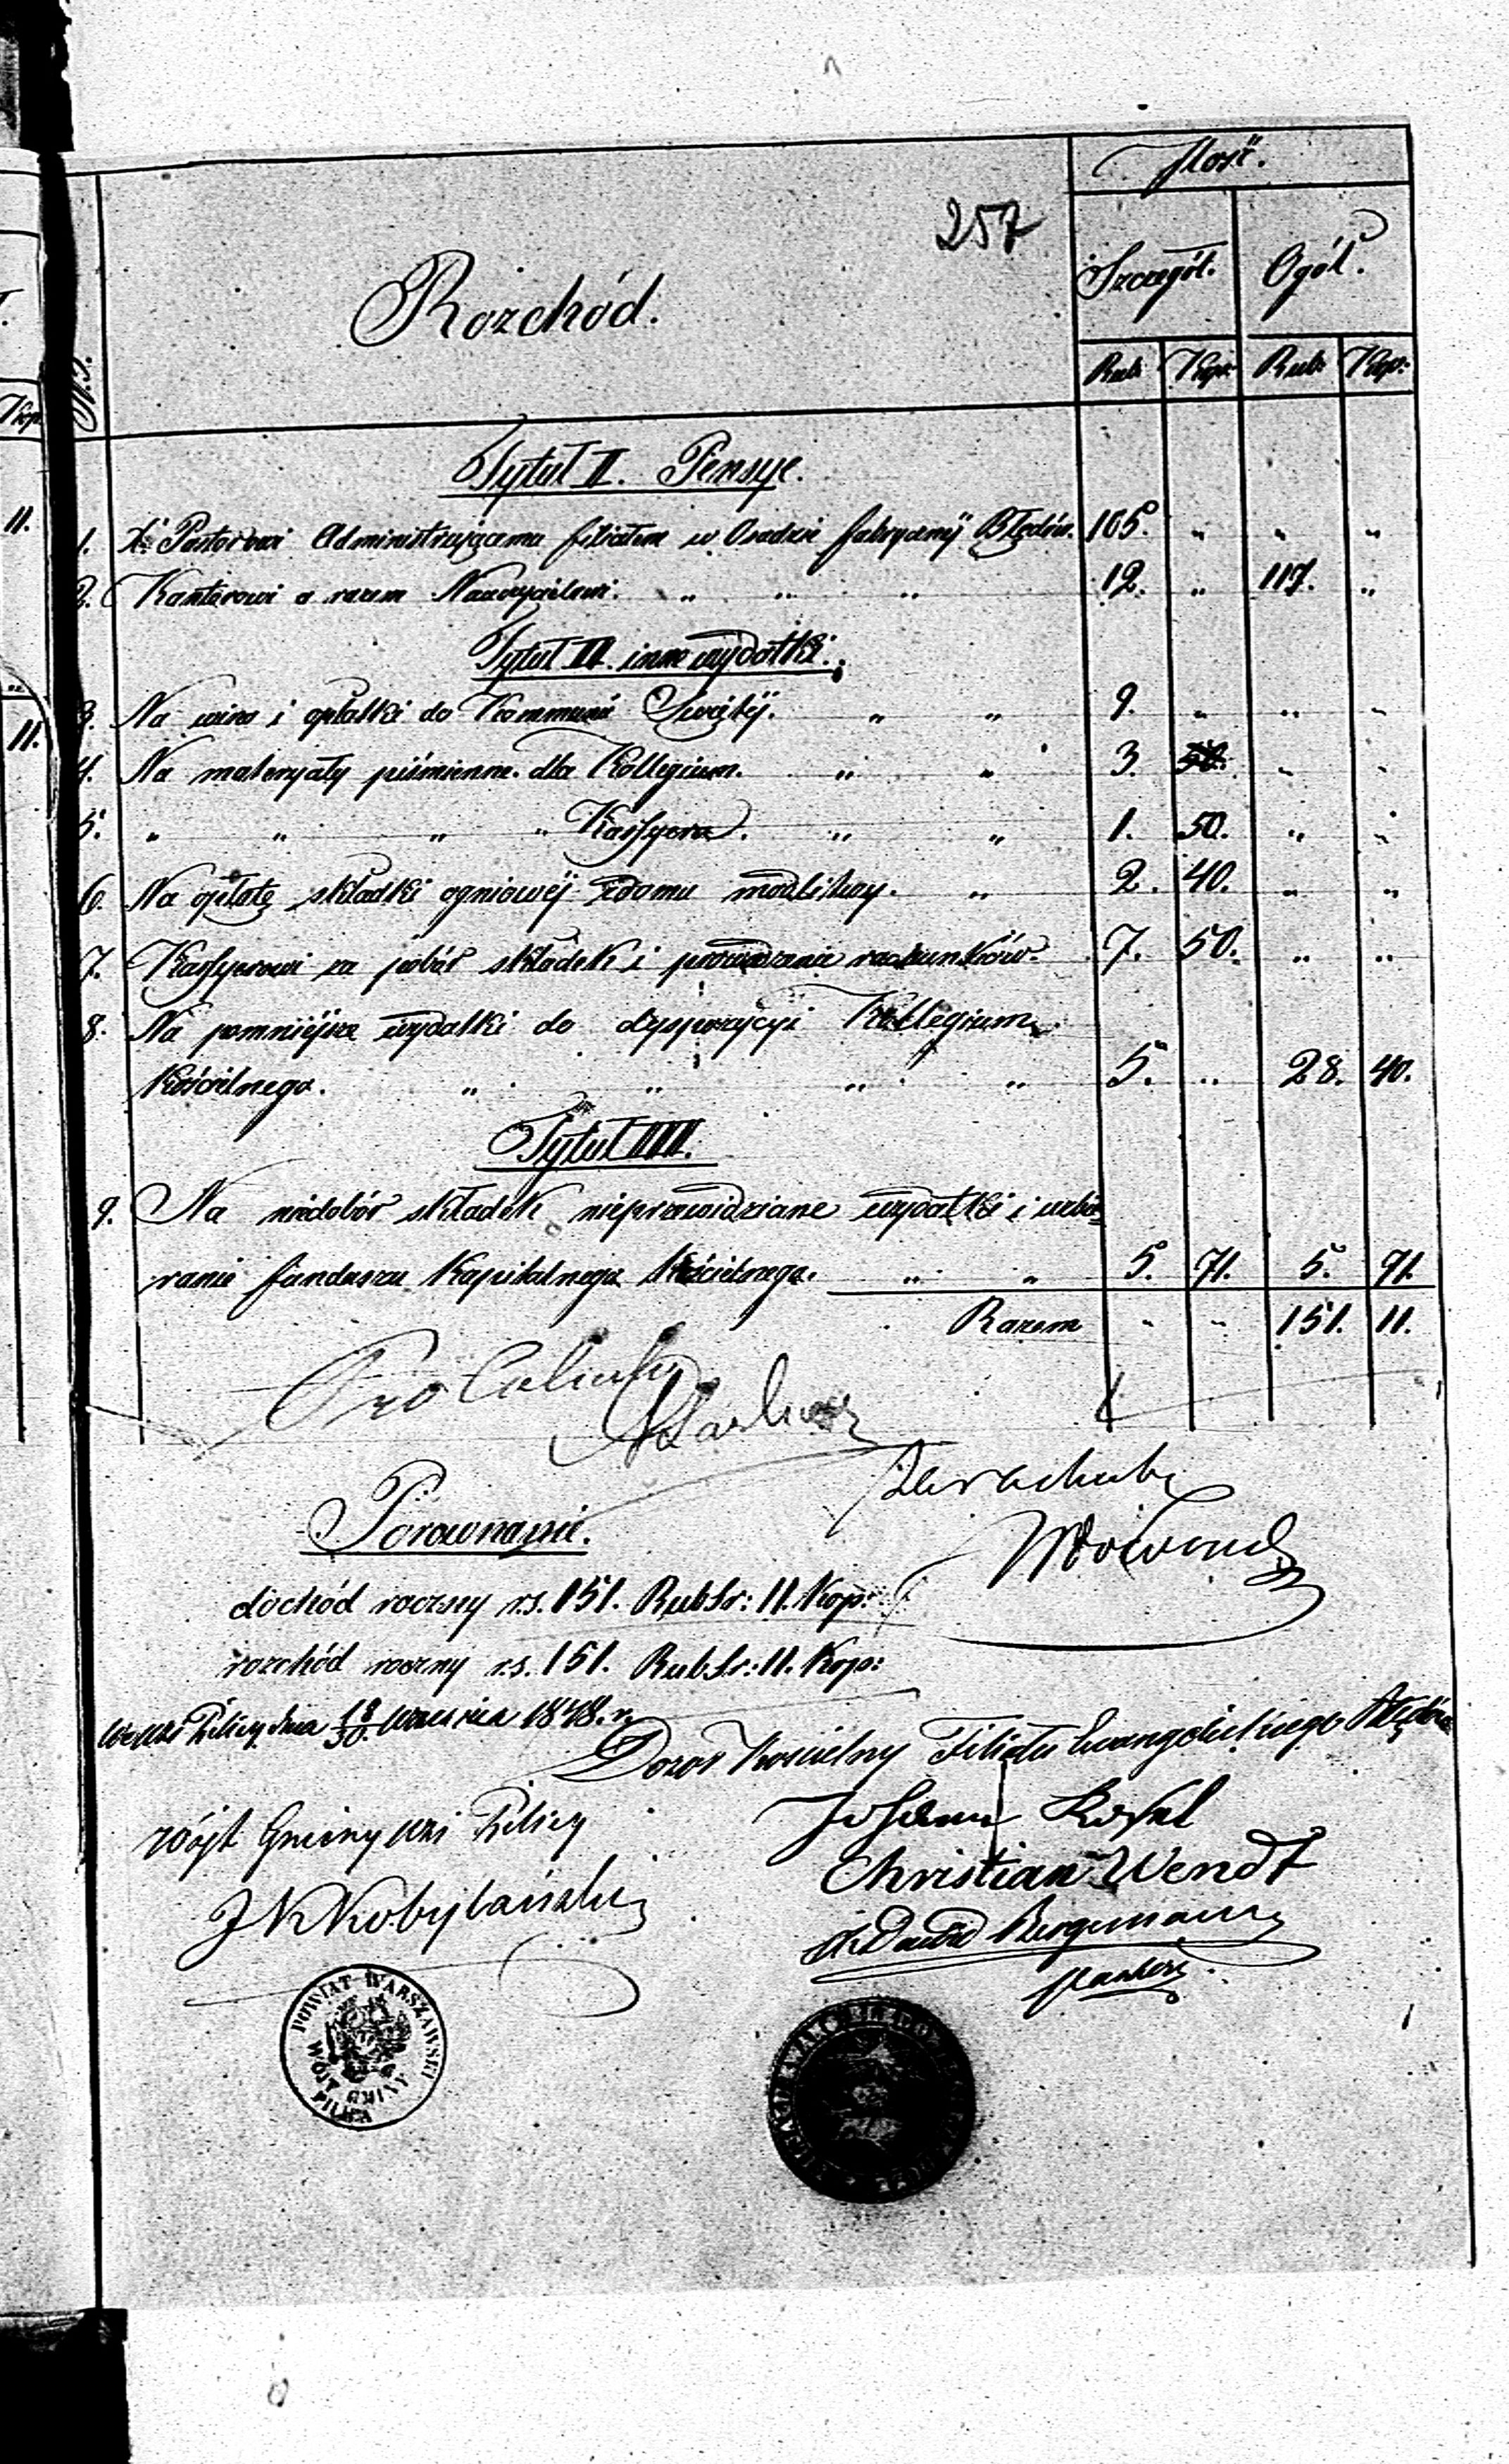 257
Ilość.
Rozchód.
Szczegół. Ogół.
N. Rub: Kop: Rub: Kop:
Tytuł II. Pensye.
1. X. Pastorowi Administrującemu filiałem w Osadzie fabrycznéj Błędów. 105. " " "
2. Kantorowi a razem Nauczycielowi. " " " 12. " 117. "
Tytuł III. inne wydatki.
3. Na wino i opłatki do Kommunii Swiętéj. " " 9. " " "
4. Na materyały piśmienne dla Kollegium. " " 3. " "
5. " " " " Kassyera. " " 1. 50. " "
6. Na opłatę składki ogniowéj z domu modlitwy. " 2. 40. " "
7. Kassyerowi za pobór składek i prowadzenie rachunków. 7. 50. " "
8. Na pomniéjsze wydatki do dyspozycyi Kollegium
Kościelnego. " " " " 5. " 28. 40.
Tytuł IIII.
9. Na niedobór składek nieprzewidziane wydatki i uzbie
ranie funduszu Kapitalnego Kościelnego. " " 5. 71. 5. 71.
Razem " " 151. 11.
Porownanie.
dochód roczny r.s. 151. Rub Sr: 11. Kop:
rozchód roczny r.s. 151. Rub Sr: 11. Kop:
Pilicy dnia 18/30 Września 1848. r.
Dozór Kościelny Filiału Ewangelickiego Błędów
Wójt Gminy Wsi Pilicy
Johann
Christian Wendt
J N Kobylański
David Bergmann
Kantor
POWIAT WARSZAWSKI
WÓJT GMINY
PILICA